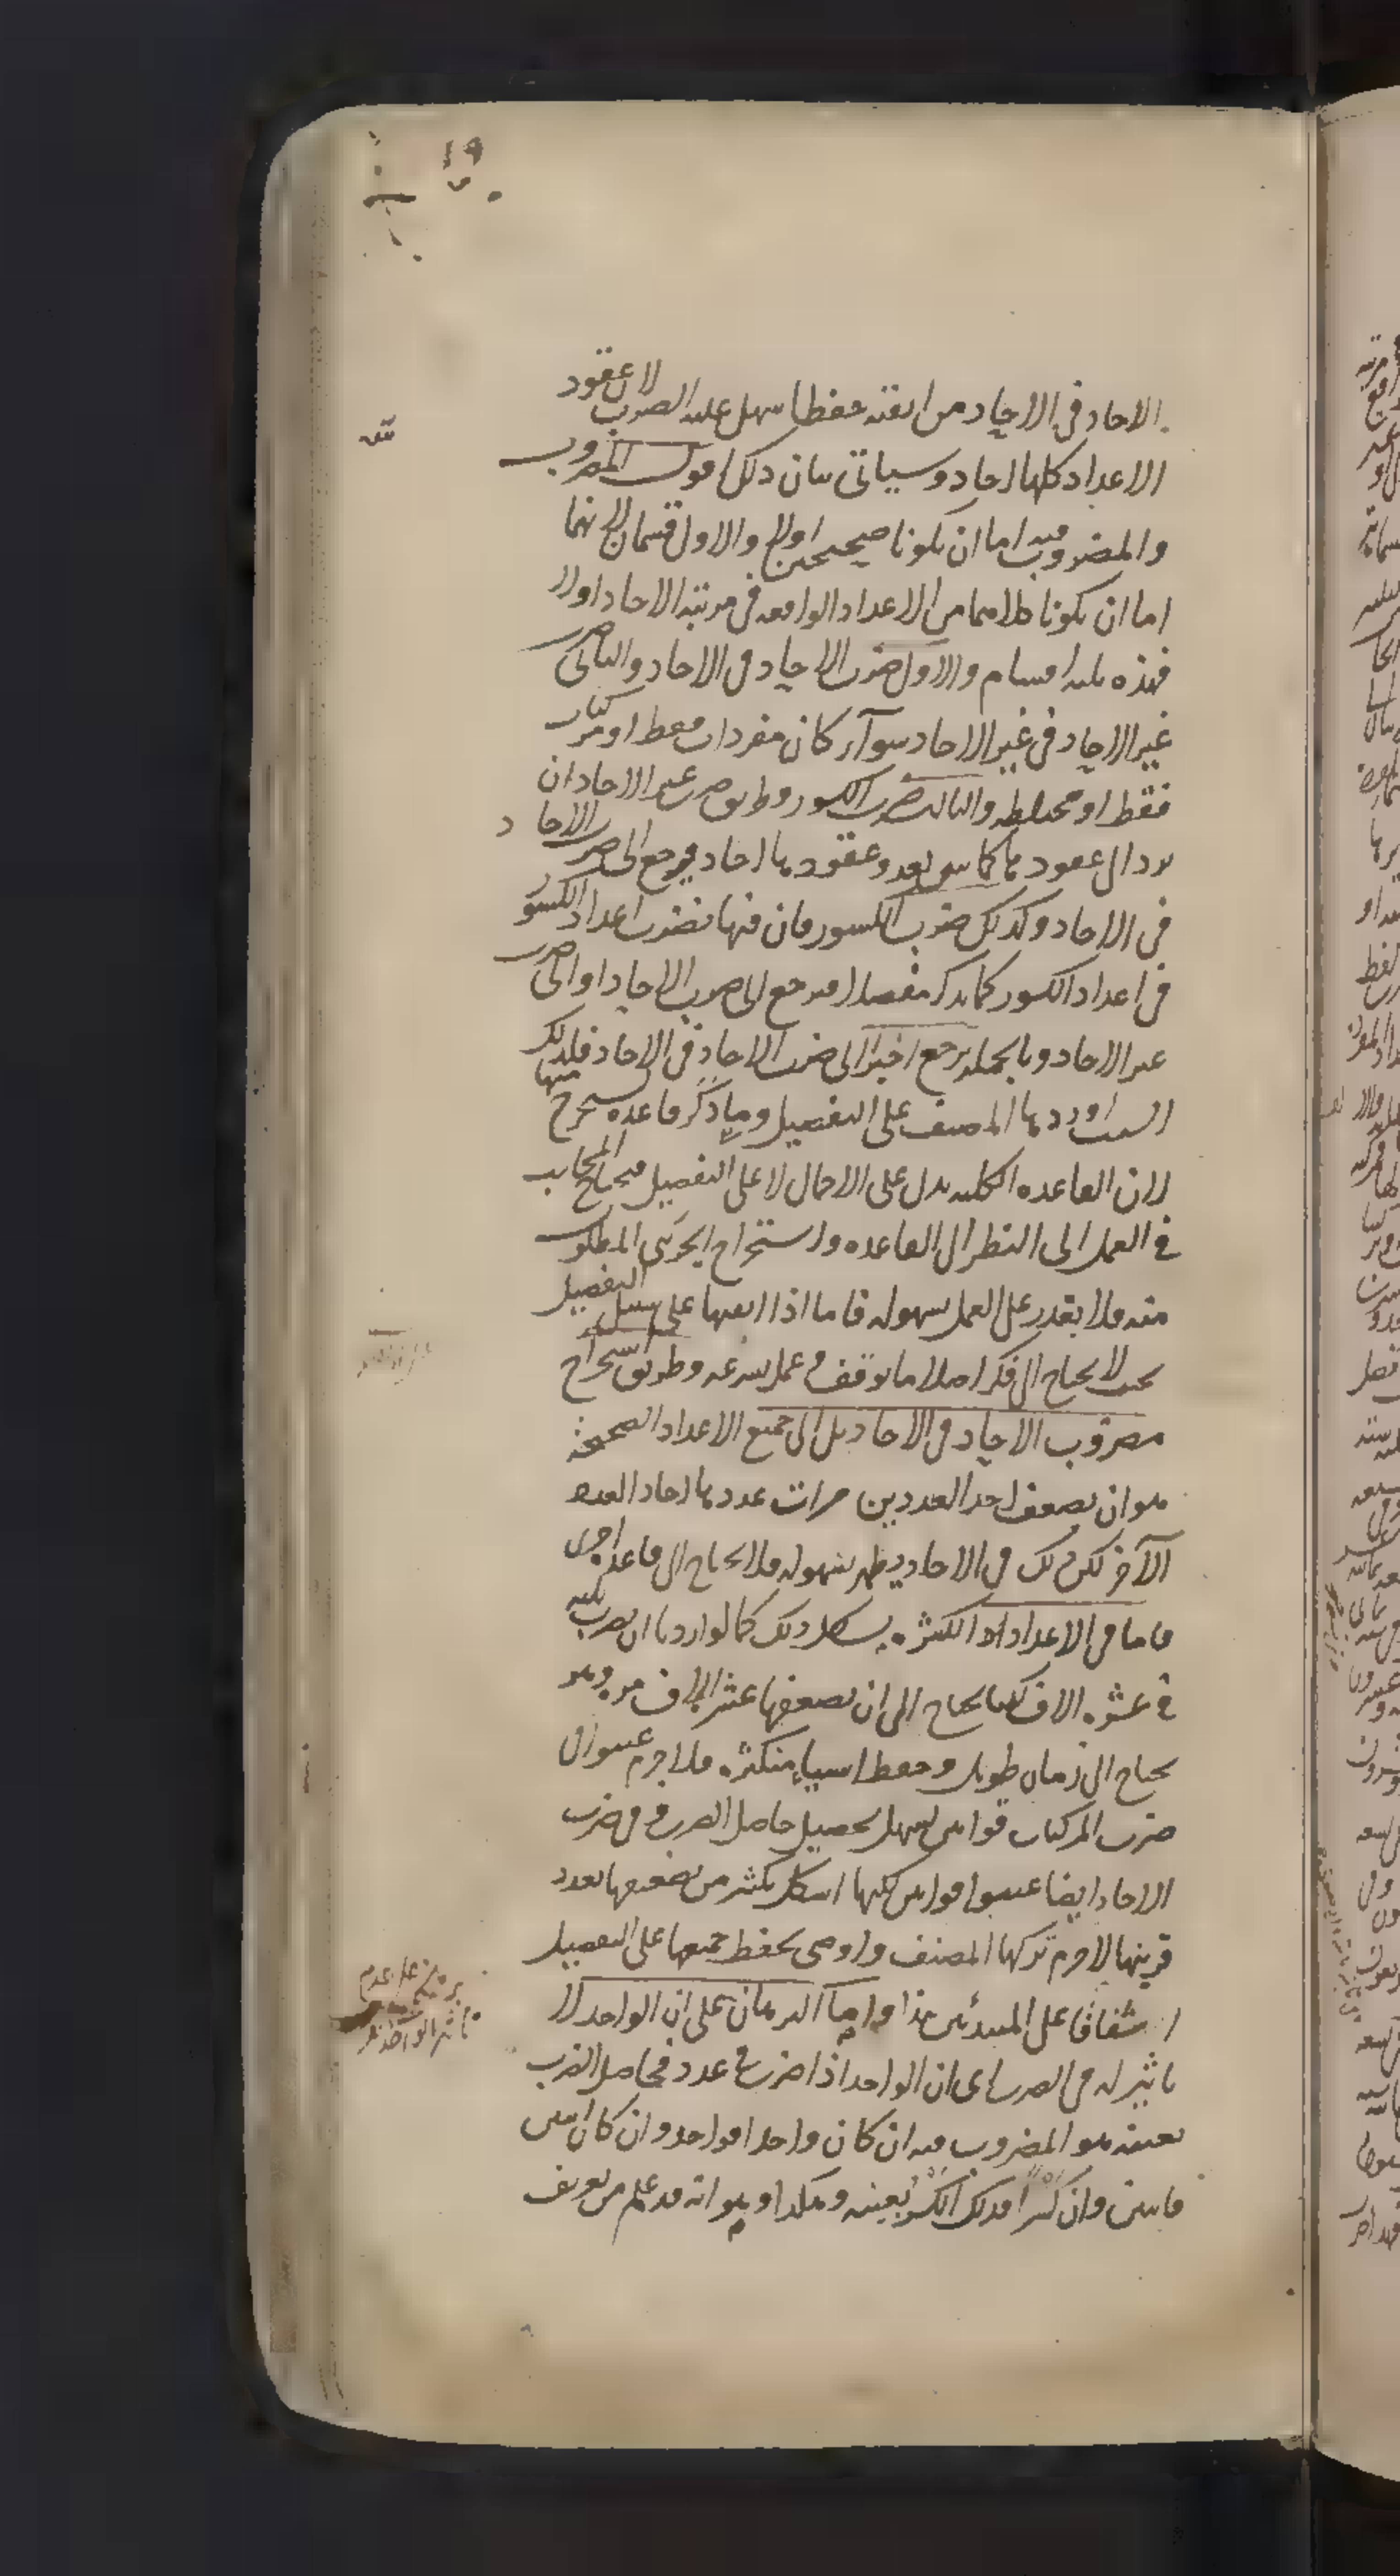 ١٩
الاحاد في الاحاد من اتقنه حفظا سهل عليه الضرب لان عقود
الاعداد كلها احاد وسياتي بيان ذلك اقول المضروب
والمضروب فيه اما ان يكونا صحيحين اولا والاول قسمان لانهما
اما ان يكونا كلاهما من الاعداد الواقعة في مرتبة الاحاد اولا
فهذه ثلثة اقسام والاول ضرب الاحاد في الاحاد والثاني ضرب
غير الاحاد في غير الاحاد سوآء كان مفردات فقط او مركبات
فقط او مختلطة والثالث ضرب الكسور وطريق ضرب غير الاحاد ان
يرد الى عقودها كما سنن بعد وعقودها احاد فيرجع الى ضرب الاحاد
في الاحاد وكذلك ضرب الكسور فان فيها تضرب اعداد الكسور
في اعداد الكسور كما يذكر مفصلا فيرجع الى ضرب الاحاد او الى ضرب
غير الاحاد وبالجملة يرجع اخيرا الى ضرب الاحاد في الاحاد فلذلك
اوردها المصنف على التفصيل وما ذكر قاعدة يستخرج منها
لان القاعدة الكلية يدل على الاجمال لا على التفصيل فيحتاج المحاسب
في العمل الى النظر الى القاعدة واستخراج الجزئى المطلوب
منه فلا يقدر على العمل بسهولة فاما اذا اتقنها على سبيل التفصيل
بحيث لا يحتاج الى فكر اصلا ما توقف في عمل بسرعة وطريق استخراج
مضروب الاحاد في الاحاد بل الى جميع الاعداد الصحيحة
هو ان يضعف احد العددين مرات عددها احاد العدد
الآخر لكن ذلك في الاحاد يظهر بسهولة فلا يحتاج الى قاعدة اخرى
فاما في الاعداد الكثيرة يشكل ذلك كما لو اردنا ان نضرب ثلثة
في عشرة الاف فكنا نحتاج الى ان نضعفها عشرة الاف مرة وهو
يحتاج الى زمان طويل وحفظ اشياء متكثرة فلا جرم عينوا في
ضرب المركبات قوانين يسهل تحصيل حاصل الضرب وفي ضرب
الاحاد ايضا عينوا قوانين لكنها اشكل بكثير من تضعيفها بعدد
قرينها لا جرم تركها المصنف واوصى بحفظ جميعها على التفصيل
اشفاقا على المبتدئين هذا واما البرهان على ان الواحد لا
تاثير له في الضرب اى ان الواحد اذا ضرب في عدد فحاصل الضرب
بعينه هو المضروب فيه ان كان واحدا فواحد وان كان اثنين
فاثنين وان كسرا فذلك الكسر بعينه وهكذا وهو انه قد علم من تعريف
برهان على عدم
تاثير الواحد